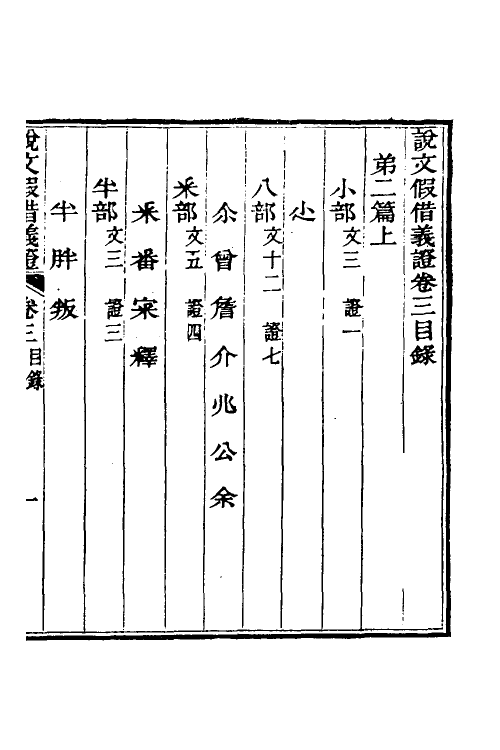 說文假借義證卷三目録
弟二篇上
小部文三 證一
尐
八部文十二 證七
尒曾詹介兆公余
釆部文五 證四
釆番宷釋
半部文三 證三
半胖叛
說文假借義證 卷三目録 一